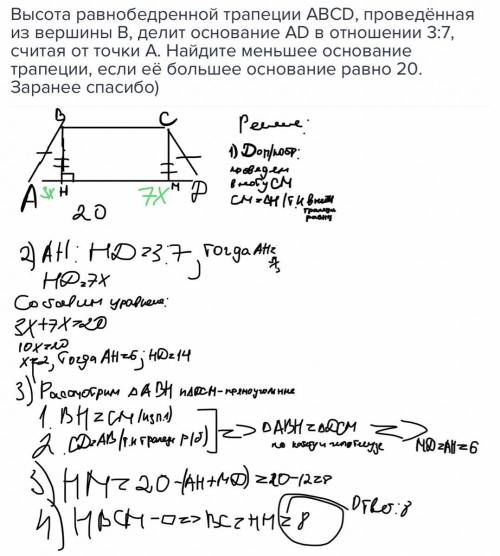 Высота равнобедренной трапеции ABCD, проведённая
из вершины B, делит основание AD в отношении 3:7,
считая от точки А. Найдите меньшее основание
трапеции, если её большее основание равно 20.
Заранее спасибо)
B C
A 3x H 7x M D
20
Решение:
1) Доп/постр:
проведем
высоту CM
2) AH : HD = 3:7, тогда AH=
HD=7x
Составим уравнение:
3x+7x=20
10x=20
x=2, тогда AH=6; HD=14
3) Рассмотрим △ABH и △DCM - прямоугольные
1. BH=CM (из п.1)
2. CD=AB (т.к трапеция р/б)
=> △ABH=△DCM
по катету и гипотенузе
=> MD=AH=6
3) HM=20-(AH+MD)=20-12=8
4) HBCM-▭=>BC=HM=8
Ответ: 8